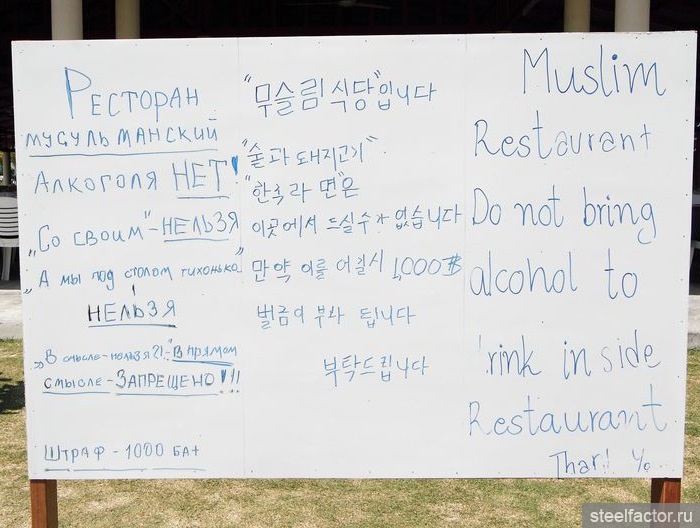 Ресторан
мусульманский
Алкоголя НЕТ!
"Со своим" - НЕЛЬЗЯ
"А мы под столом тихонько"
НЕЛЬЗЯ
"В смысле - нельзя?!" - В прямом
смысле - ЗАПРЕЩЕНО!!!
Штраф - 1000 бат
"무슬림 식당"입니다
"술과 돼지고기"
"한국라면"은
이곳에서 드실수가 없습니다
만약 이를 어길시 1,000฿
벌금이 부과 됩니다
부탁드립니다
Muslim
Restaurant
Do not bring
alcohol to
rink inside
Restaurant
steelfactor.ru